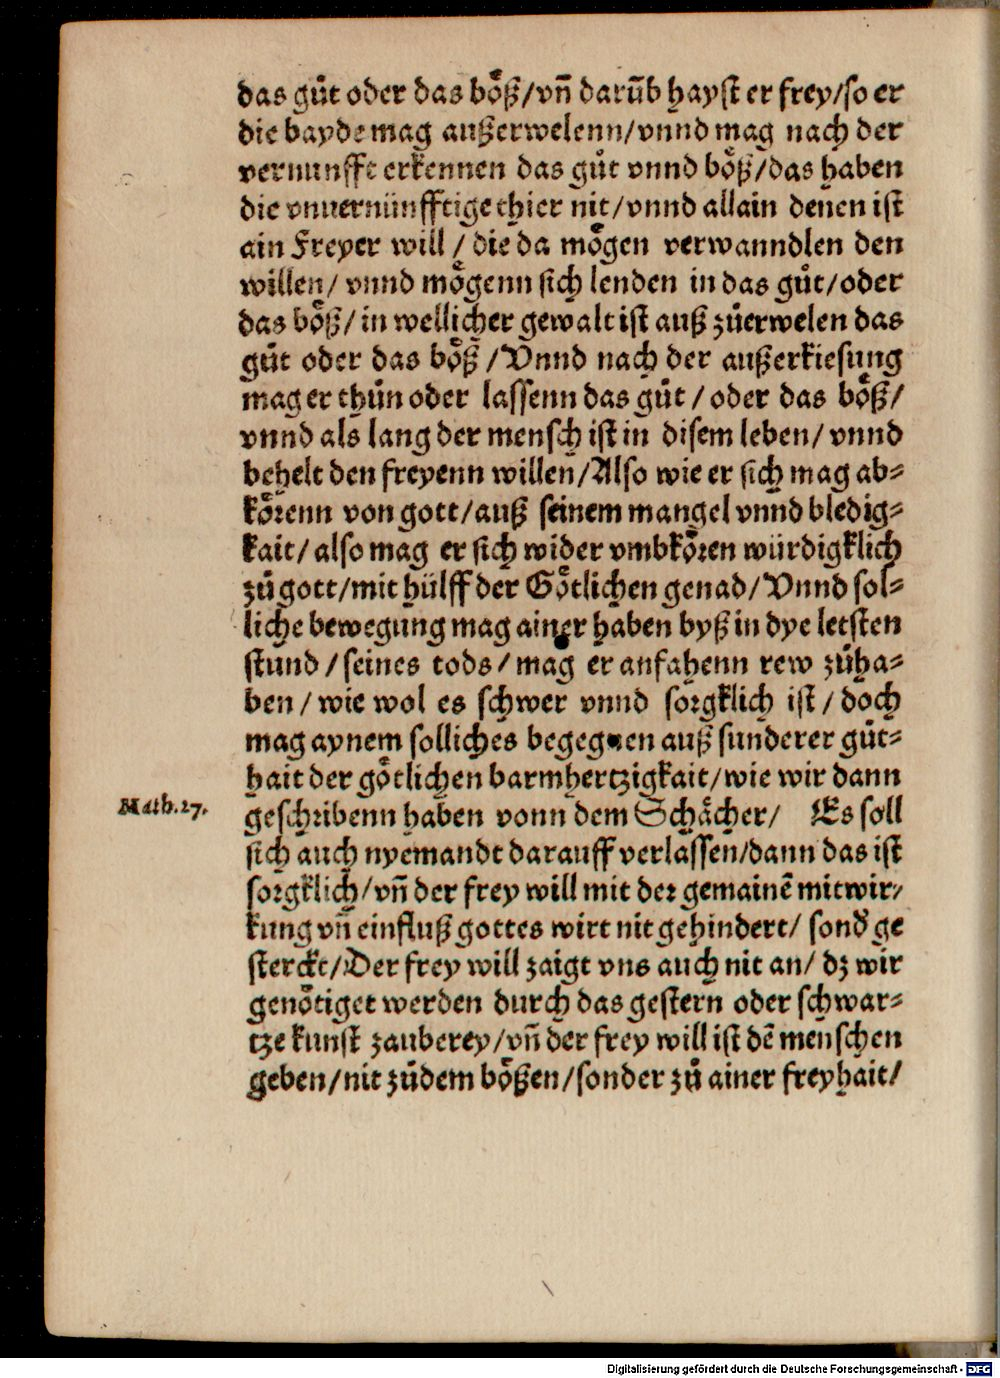 das guͤt oder das boͤß/vñ darūb hayst er frey/so er
die bayde mag außerwelenn/vnnd mag nach der
vernunfft erkennen das guͤt vnnd boͤß/das haben
die vnuernünfftige thier nit/vnnd allain denen ist
ain Freyer will / die da moͤgen verwanndlen den
willen/ vnnd moͤgenn sich lenden in das guͤt/oder
das boͤß/ in wellicher gewalt ist auß zuͤerwelen das
guͤt oder das boͤß /Vnnd nach der außerkiesung
mag er thuͤn oder lassenn das guͤt / oder das boͤß/
vnnd als lang der mensch ist in disem leben/ vnnd
behelt den freyenn willen/Also wie er sich mag ab⸗
koͤrenn von gott/auß seinem mangel vnnd bledig⸗
kait/ also mag er sich wider vmbkoͤren würdigklich
zuͤ gott/mit hülff der Goͤtlichen genad/Vnnd sol⸗
liche bewegung mag ainer haben byß in dye letsten
stund /seines tods/ mag er anfahenn rew zuͤha⸗
ben/ wie wol es schwer vnnd sorgklich ist/ doch
mag aynem solliches begegnen auß sunderer guͤt⸗
hait der goͤtlichen barmhertzigkait/wie wir dann
Math.27. geschribenn haben vonn dem Schaͤcher/ Es soll
sich auch nyemandt darauff verlassen/dann das ist
sorgklich/vñ der frey will mit der gemainē mitwir⸗
kung vñ einfluß gottes wirt nit gehindert/ sond̕ ge
sterckt/Der frey will zaigt vns auch nit an/ dz wir
genoͤtiget werden durch das gestern oder schwar⸗
tze kunst zauberey/vñ der frey will ist dē menschen
geben/nit zuͤdem boͤßen/sonder zuͤ ainer freyhait/
Digitalisierung gefördert durch die Deutsche Forschungsgemeinschaft - DFG